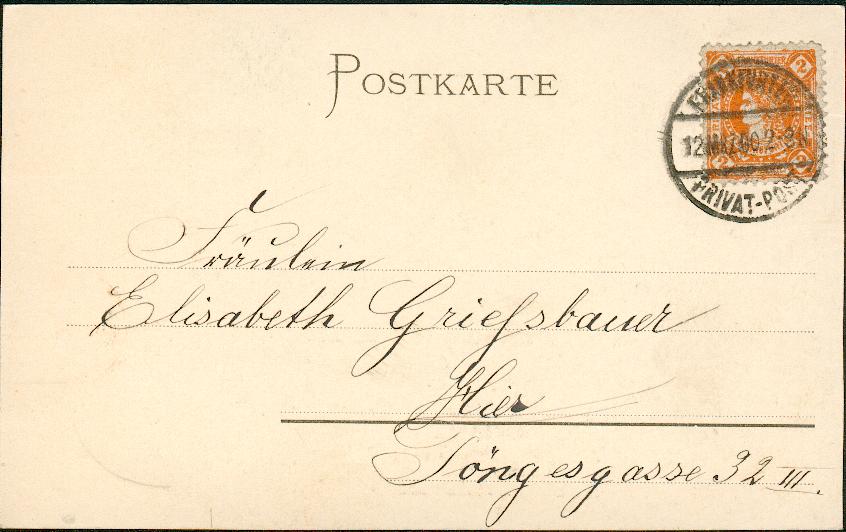 POSTKARTE
2 2
FRANKFURTER
12 MRZ 00 2-3N
PRIVAT-POST
2 2
Fräulein
Elisabeth Grießbauer
Hier
Töngesgasse 32 III.